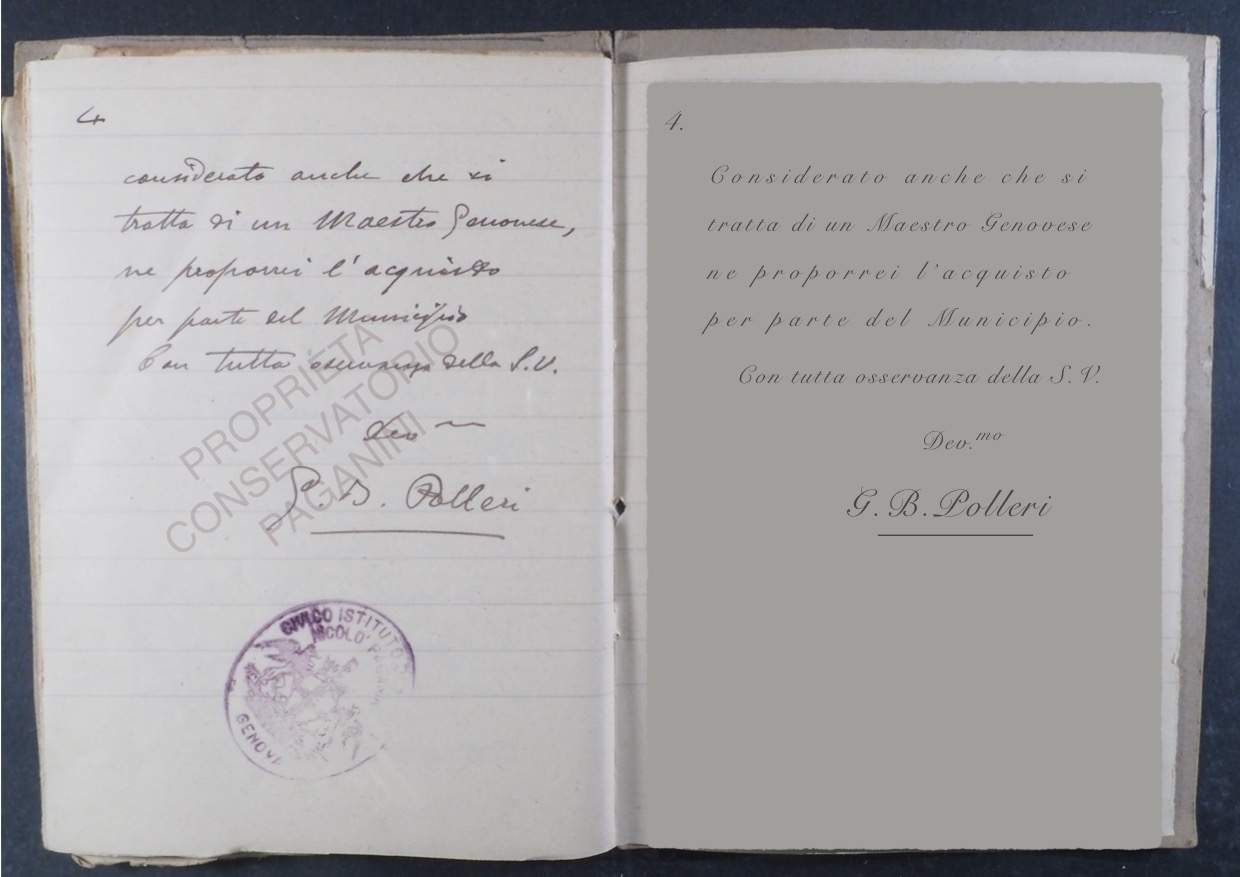 4
considerato anche che si
tratta di un Maestro Genovese,
ne proporrei l'acquisto
per parte del Municipio
Con tutta osservanza della S.V.
dev mo
G. B. Polleri
PROPRIETÀ
CONSERVATORIO
PAGANINI
CIVICO ISTITUTO
NICOLO'
GENOVA
4.
Considerato anche che si
tratta di un Maestro Genovese
ne proporrei l'acquisto
per parte del Municipio.
Con tutta osservanza della S.V.
Dev.mo
G. B. Polleri